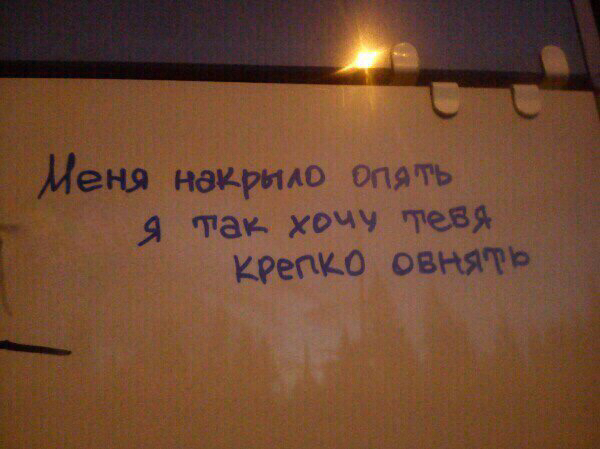 Меня накрыло опять
я так хочу тебя
крепко обнять